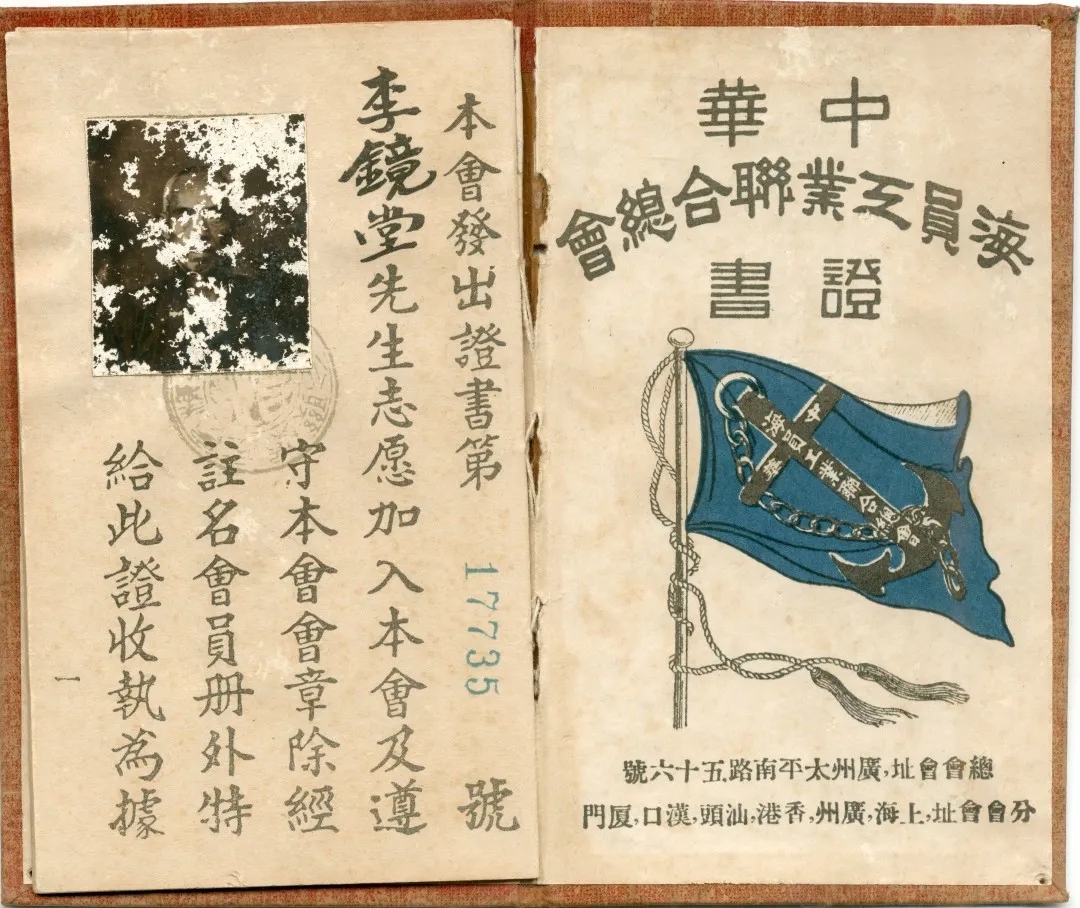 中華
海員工業聯合總會
證書
中華
海員工業聯合總會
總會會址,廣州太平南路五十六號
分會會址,上海,廣州,香港,汕頭,漢口,厦門
本會發出證書第17735號
李鏡堂先生志愿加入本會及遵
守本會會章除經
註名會員册外特
給此證收執為據
一